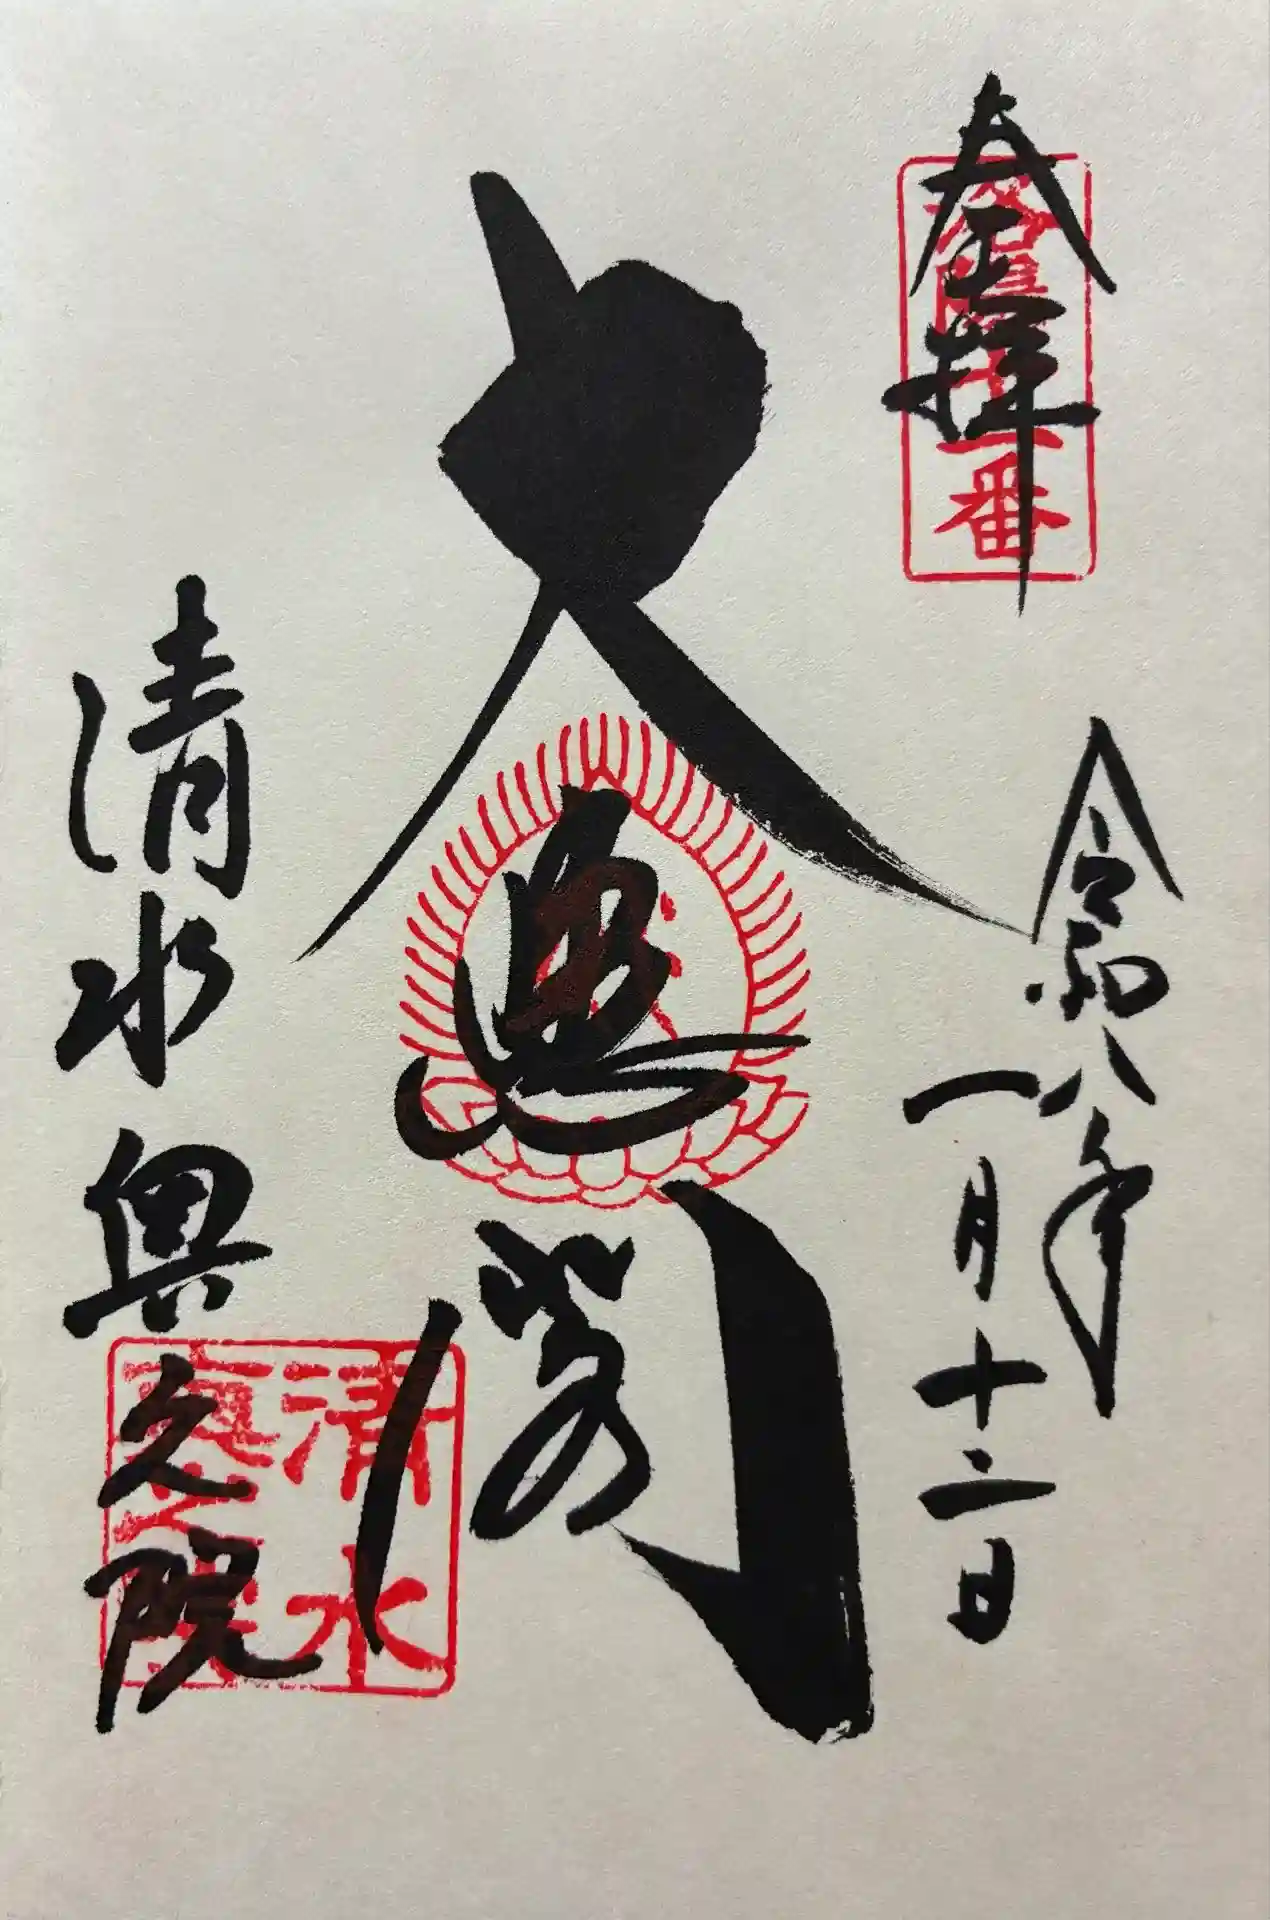 奉拝
洛陽十一番
令和八年
一月十二日
大悲閣
清水奥之院
清水
奥之院